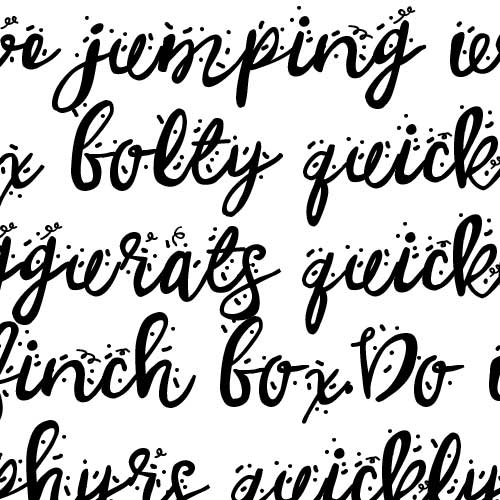 ve jumping w
x bolty quick
ggurats quick
finch box. Do
phyrs quickly